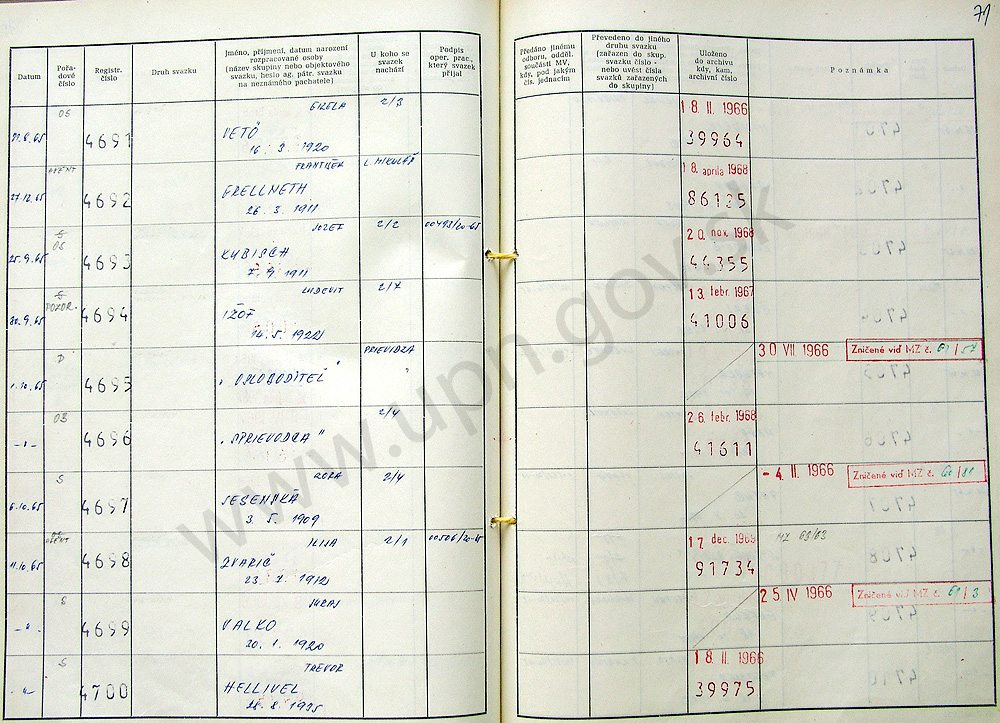 71
Datum
Pořa-
dové
číslo
Registr.
číslo
Druh svazku
Jméno, příjmení, datum narození
rozpracované osoby
(název skupiny nebo objektového
svazku, heslo ag. pátr. svazku
na neznámého pachatele)
U koho se
svazek
nachází
Podpis
oper. prac.,
který svazek
přijal
Předáno jinému
odboru, odděl.
součásti MV,
kdy, pod jakým
čís. jednacím
Převedeno do jiného
druhu svazku
(zařazen do skup.
svazku číslo -
nebo uvést čísla
svazků zařazených
do skupiny)
Uloženo
do archivu
kdy, kam,
archivní číslo
Poznámka
OS GIZELA 2/3 18 II. 1966
4691 VETŐ 39964
16. 3. 1920
FRANTIŠEK L. MIKULÁŠ 18. apríla 1968
27.12.65 4692 GRELLNETH 86125
26. 3. 1911
S OS JOZEF 2/2 00493/20-65 20. nov. 1968
25.9.65 4693 KUBISCH 44355
7. 9. 1911
S POZOR. ĽUDEVIT 2/7 13. febr. 1967
30.9.65 4694 IŽOF 41006
14. 5. 1922
P PRIEVIDZA 30 VII 1966 Zničené viď MZ č.
1.10.65 4695 „OSLOBODITEĽ"
2/4 26. febr. 1968
-„- 4696 „SPRIEVODCA" 41611
S 2/4 - 4. II. 1966 Zničené viď MZ č.
6.10.65 4697 JESENSKÁ
3. 5. 1909
ILIJA 2/1 00506/20-65 17. dec. 1969 MZ 63/63
11.10.65 4698 ZVARIČ 91734
23. 7. 1912
S JURAJ 25 IV 1966 Zničené viď MZ č.
-„- 4699 VALKO
20. 1. 1920
S TREVOR 18. II. 1966
-„- 4700 HELLIVEL 39975
www.upn.gov.sk